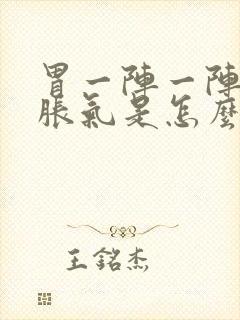 胃一陣一陣
脹氣是怎麼
王銘杰